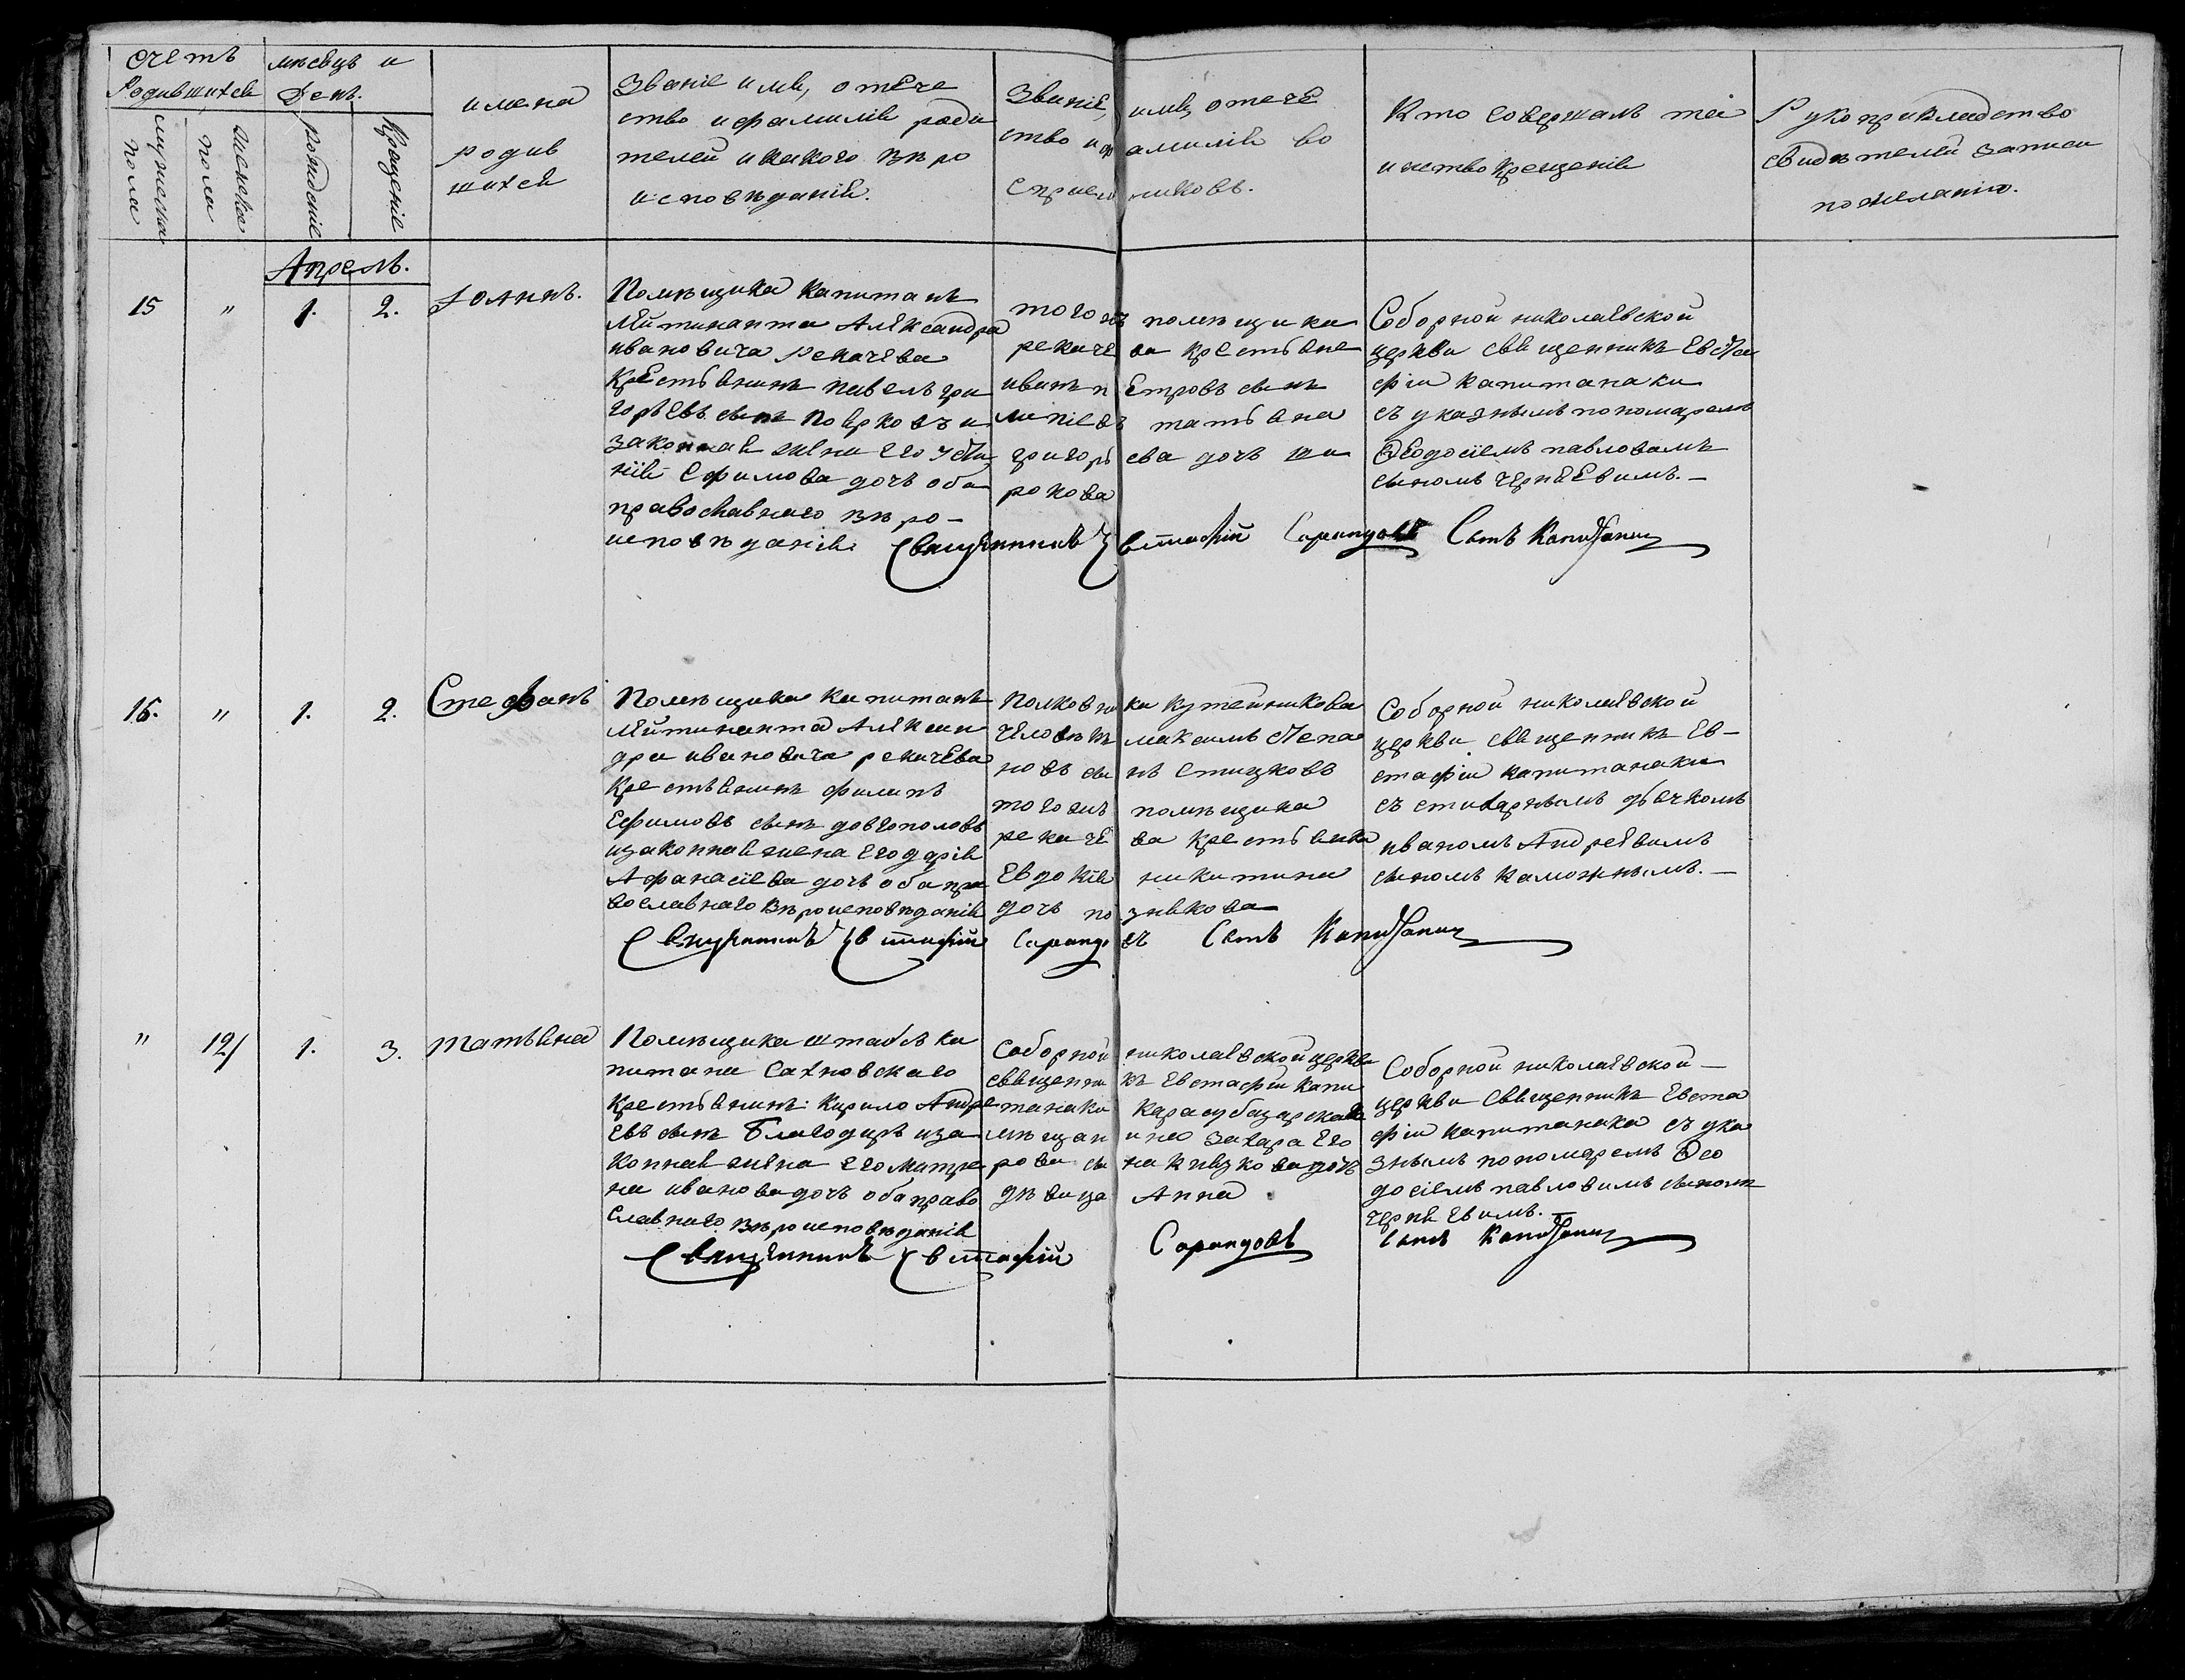 Счетъ
Родившихся
мѣсяцъ и
День.
мужеска
пола
женска
пола
рожденіе
крещеніе
имена
родив
шихся
Званіе имя, отече
ство и фамилія роди
телей и какого вѣро
исповѣданія.
Званіе, имя, отече
ство и фамилія во
спріемниковъ.
Кто совершалъ таи
инство крещенія
Рукоприкладство
свидѣтелей записи
по желанію.
Апрель.
15 " 1. 2. Іоаннъ.
Помѣщика Капитанъ
Лейтинанта Александра
ивановича Рекачева
Крестьянинъ павелъ гри
горьевъ сынъ
законная жена его Усти
нія Ефимова дочь оба
православнаго вѣро-
исповѣданія.
тогожъ помѣщика
рекачева крестьяне
иванъ петровъ сынъ
татьяна
григорьева дочь ши
рокова
Соборной николаевской
церкви священникъ Евста
фіи капитанаки
съ указнымъ пономаремъ
Ѳеодосіемъ павловымъ
сыномъ чернѣевимъ.-
Священникъ Евстафій Сарандовъ Сынъ Капитанаки
16. " 1. 2. Стефанъ
Помѣщика капитанъ
лейтинанта Алексан
дра ивановича рекачева
Крестьянинъ филипъ
Ефимовъ сынъ довгополовъ
изаконная жена его дарія
Афанасіева дочь оба пра
вославнаго вѣроисповѣданія
Полковника кутейникова
человѣкъ максимъ Степа
новъ сынъ стицковъ
тогожъ помѣщика
рекачева крестьянка
Евдокія никитина
дочь познякова
Соборной николаевской
церкви священникъ Ев-
стафіи капитанаки
съ стихарнымъ дьячкомъ
иваномъ Андреевымъ
сыномъ каможнымъ.-
Священникъ Евстафій Сарандовъ Сынъ Капитанаки
" 12 1. 3. Татьяна
Помѣщика штабсъ ка
питана Сахновскаго
Крестьянинъ Кирило Андре
евъ сынъ Благодиръ иза
конная жена его Матре
на иванова дочь оба право
славнаго вѣроисповѣданія
Соборной николаевской церкви
священникъ Евстафіи капи
танаки карасубазарскаго
мѣщанина Захара Его
рова сына дочь
дѣвица Анна
Соборной николаевской-
церкви священникъ Евста
фіи капитанаки съ ука
знымъ пономаремъ Ѳео
досіемъ павловимъ сыномъ
чернѣевимъ.-
Священникъ Евстафій Сарандовъ Сынъ Капитанаки